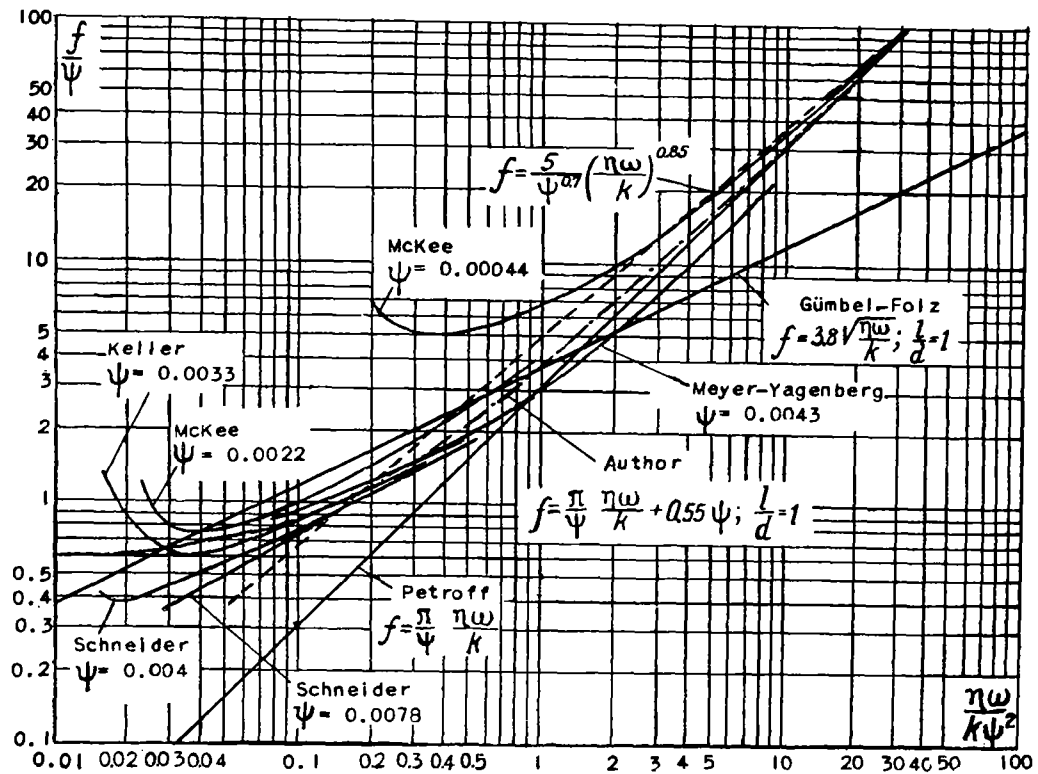 100
f/ψ
50
40
30
20
10
5
4
3
2
1
0.5
0.4
0.3
0.2
0.1
f = 5/ψ^0.7 (ηω/k)^0.85
McKee
ψ = 0.00044
Gümbel-Folz
f = 3.8√(ηω/k); l/d = 1
Keller
ψ = 0.0033
Meyer-Yagenberg
ψ = 0.0043
McKee
ψ = 0.0022
Author
f = π/ψ ηω/k + 0.55 ψ; l/d = 1
Petroff
f = π/ψ ηω/k
Schneider
ψ = 0.004
Schneider
ψ = 0.0078
ηω/kψ²
0.01 0.02 0.03 0.04 0.1 0.2 0.3 0.4 0.5 1 2 3 4 5 10 20 30 40 50 100